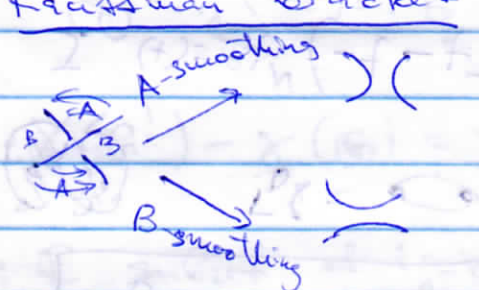 Kauffman bracket
A-smoothing
A
B
B
A
B-smoothing